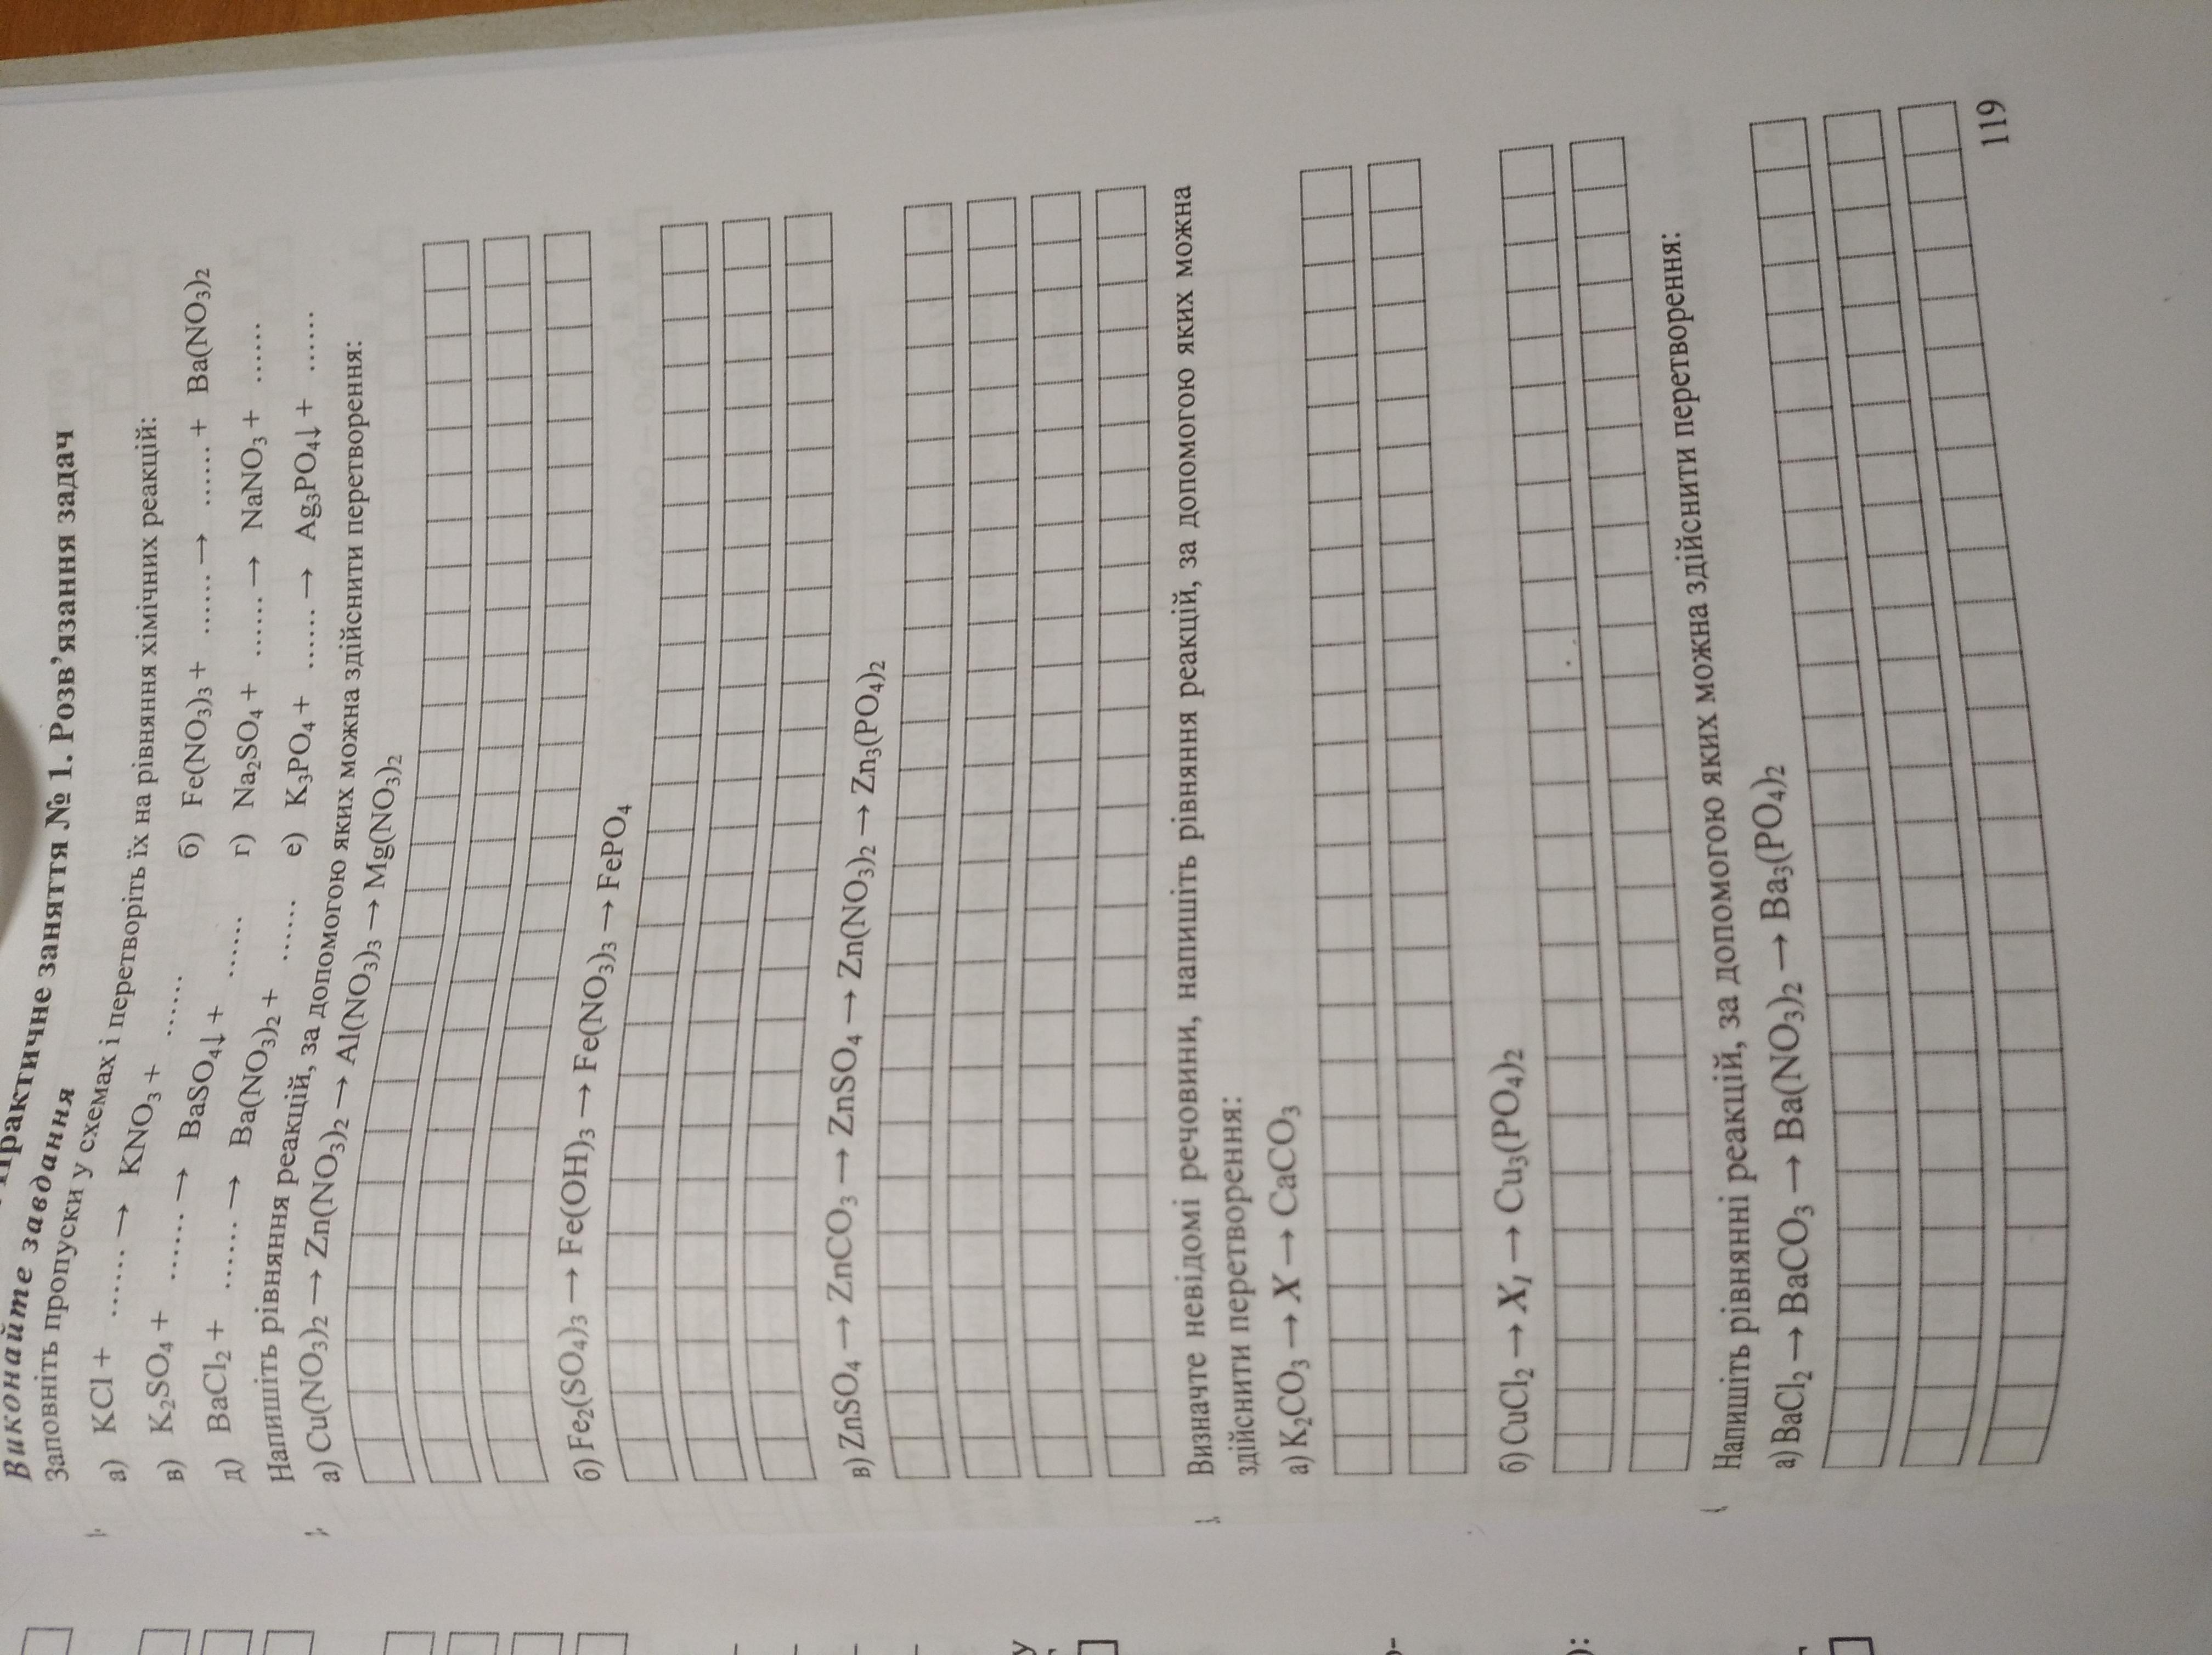 Практичне заняття № 1. Розв’язання задач
Виконайте завдання
Заповніть пропуски у схемах і перетворіть їх на рівняння хімічних реакцій:
а) KCl + ...... → KNO₃ + ...... б) Fe(NO₃)₃ + ...... → ...... + Ba(NO₃)₂
в) K₂SO₄ + ...... → BaSO₄↓ + ...... г) Na₂SO₄ + ...... → NaNO₃ + ......
д) BaCl₂ + ...... → Ba(NO₃)₂ + ...... е) K₃PO₄ + ...... → Ag₃PO₄↓ + ......
Напишіть рівняння реакцій, за допомогою яких можна здійснити перетворення:
а) Cu(NO₃)₂ → Zn(NO₃)₂ → Al(NO₃)₃ → Mg(NO₃)₂
б) Fe₂(SO₄)₃ → Fe(OH)₃ → Fe(NO₃)₃ → FePO₄
в) ZnSO₄ → ZnCO₃ → ZnSO₄ → Zn(NO₃)₂ → Zn₃(PO₄)₂
Визначте невідомі речовини, напишіть рівняння реакцій, за допомогою яких можна
здійснити перетворення:
а) K₂CO₃ → X → CaCO₃
б) CuCl₂ → X₁ → Cu₃(PO₄)₂
Напишіть рівнянні реакцій, за допомогою яких можна здійснити перетворення:
а) BaCl₂ → BaCO₃ → Ba(NO₃)₂ → Ba₃(PO₄)₂
119